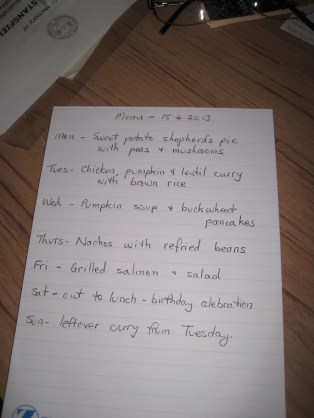 Menu - 15.4.2013.
Mon - Sweet potato shepherd's pie
with peas & mushrooms
Tues - Chicken, pumpkin & lentil curry
with brown rice
Wed - Pumpkin soup & buckwheat
pancakes
Thurs - Nachos with refried beans
Fri - Grilled salmon & salad
Sat - out to lunch - birthday celebration
Sun - leftover curry from Tuesday.